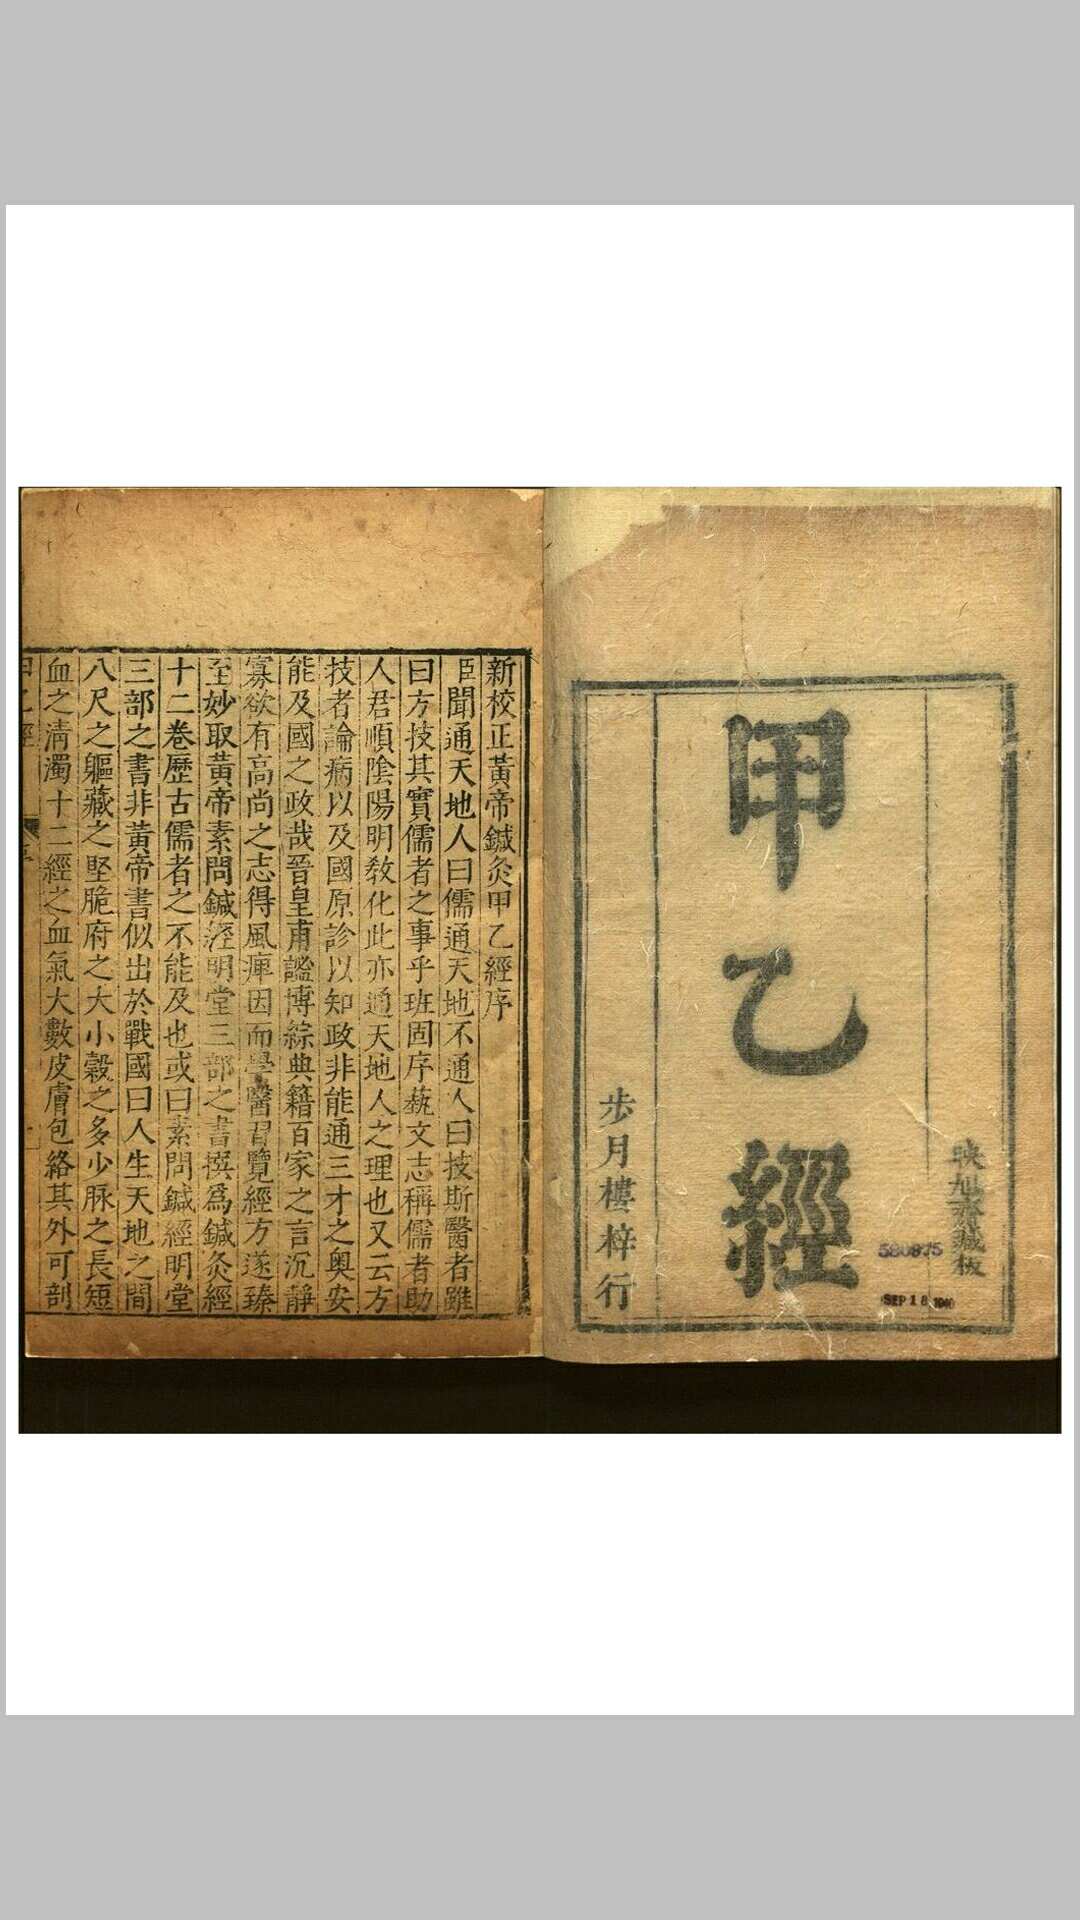 映旭齋藏板
甲乙經
步月樓梓行
580875
SEP 18 1940
新校正黃帝鍼灸甲乙經序
臣聞通天地人曰儒通天地不通人曰技斯醫者雖
曰方技其實儒者之事乎班固序藝文志稱儒者助
人君順陰陽明敎化此亦通天地人之理也又云方
技者論病以及國原診以知政非能通三才之奧安
能及國之政哉晉皇甫謐博綜典籍百家之言沉靜
寡欲有高尚之志得風痺因而學醫習覽經方遂臻
至妙取黃帝素問鍼經明堂三部之書撰爲鍼灸經
十二卷歷古儒者之不能及也或曰素問鍼經明堂
三部之書非黃帝書似出於戰國曰人生天地之間
八尺之軀藏之堅脆府之大小穀之多少脉之長短
血之清濁十二經之血氣大數皮膚包絡其外可剖
甲乙經